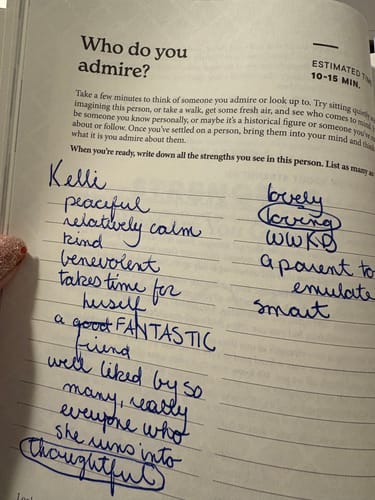 Who do you
admire?
ESTIMATED
10-15 MIN.
Take a few minutes to think of someone you admire or look up to. Try sitting quietly
imagining this person, or take a walk, get some fresh air, and see who comes to mind.
be someone you know personally, or maybe it's a historical figure or someone you've
about or follow. Once you've settled on a person, bring them into your mind and
what it is you admire about them.
When you're ready, write down all the strengths you see in this person. List as many as
Kelli
peaceful
relatively calm
kind
benevolent
takes time for
herself
a good FANTASTIC
friend
well liked by so
many, really
everyone who
she runs into
thoughtful
lovely
loving
WWKD
a parent to
emulate
smart